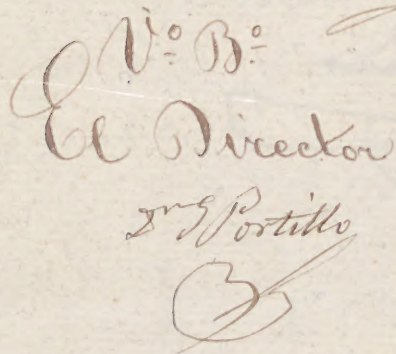 Vº Bº
El Director
Portillo